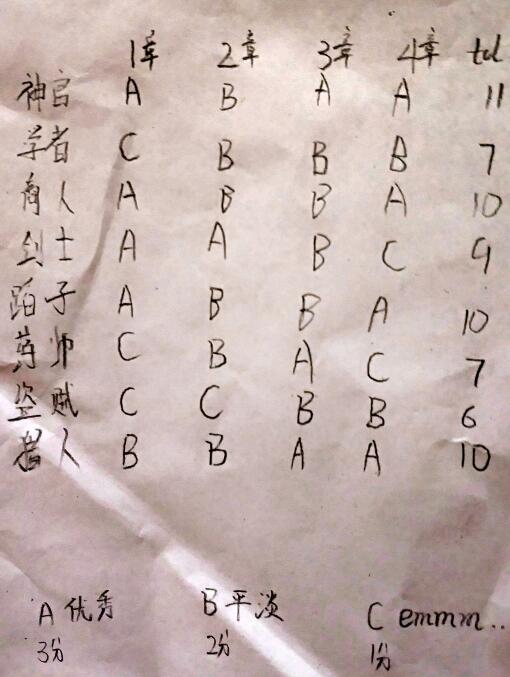 1章 2章 3章 4章 ttl
神官 A B A A 11
学者 C B B B 7
商人 A B B A 10
剑士 A A B C 9
蹈子 A B B A 10
药师 C B A C 7
盗贼 C C B B 6
猎人 B B A A 10
A 优秀 B 平淡 C emmm..
3分 2分 1分